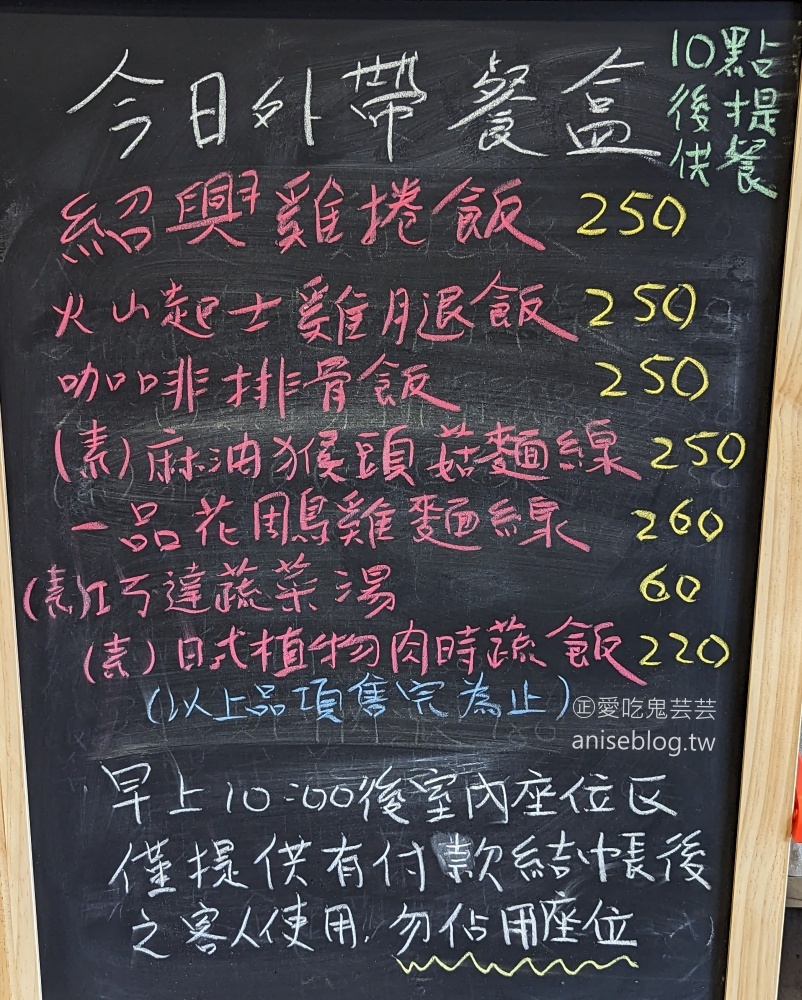 今日外帶餐盒
10點
後提
供餐
紹興雞捲飯 250
火山起士雞腿飯 250
咖啡排骨飯 250
(素)麻油猴頭菇麵線 250
一品花鵰雞麵線 260
(素)江丂達蔬菜湯 60
(素)日式植物肉時蔬飯 220
(以上品項售完為止)
㊣愛吃鬼芸芸
aniseblog.tw
早上10:00後室內座位區
僅提供有付款結帳後
之客人使用.勿佔用座位